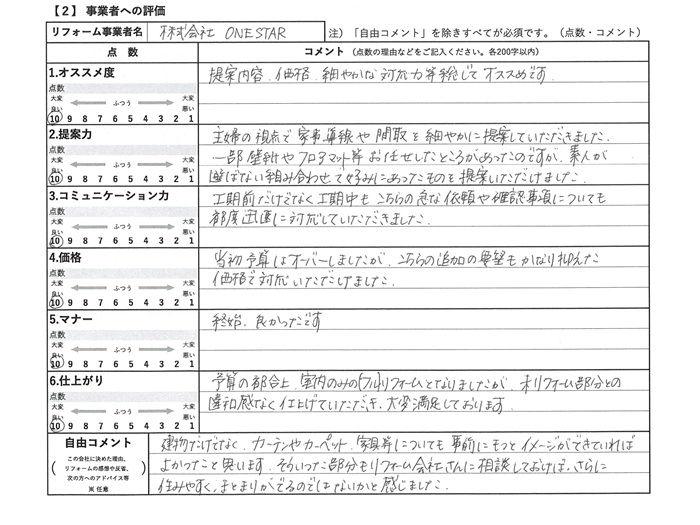 【2】事業者への評価
リフォーム事業者名 株式会社 ONESTAR 注）「自由コメント」を除きすべてが必須です。（点数・コメント）
点 数 コメント（点数の理由などをご記入ください。各200字以内）
1.オススメ度
点数
大変良い ふつう 大変悪い
10 9 8 7 6 5 4 3 2 1
提案内容、価格、細やかな対応力等総じてオススめです。
2.提案力
点数
大変良い ふつう 大変悪い
10 9 8 7 6 5 4 3 2 1
主婦の視点で家事導線や間取を細やかに提案していただきました。
一部壁紙やフロアマット等お任せしたところがあったのですが、素人が
選ばない組み合わせで好みにあったものを提案いただけました。
3.コミュニケーション力
点数
大変良い ふつう 大変悪い
10 9 8 7 6 5 4 3 2 1
工期前だけでなく工期中もこちらの急な依頼や確認事項についても
都度迅速に対応していただきました。
4.価格
点数
大変良い ふつう 大変悪い
10 9 8 7 6 5 4 3 2 1
当初予算はオーバーしましたが、こちらの追加の要望もかなり抑えた
価格で対応いただけました。
5.マナー
点数
大変良い ふつう 大変悪い
10 9 8 7 6 5 4 3 2 1
終始、良かったです
6.仕上がり
点数
大変良い ふつう 大変悪い
10 9 8 7 6 5 4 3 2 1
予算の都合上、室内のみの(フル)リフォームとなりましたが、未リフォーム部分との
違和感なく仕上げていただき、大変満足しております。
自由コメント
（この会社に決めた理由、
リフォームの感想や反省、
次の方へのアドバイス等）
※任意
建物だけでなく、カーテンやカーペット、家具等についても事前にもっとイメージができていれば
よかったと思います。そういった部分もリフォーム会社さんに相談しておけば、さらに
住みやすく、まとまりがでるのではないかと感じました。